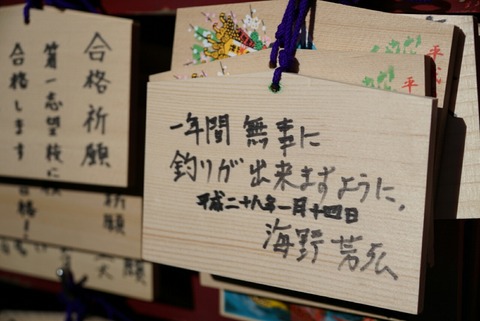 合格祈願
第一志望校に
合格します
一年間 無事に
釣りが出来ますように、
平成二十八年一月十四日
海野芳弘
祈願
合格!
願
平
平